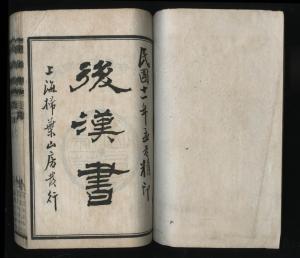 民國十一年五月精印
後漢書
上海掃葉山房發行